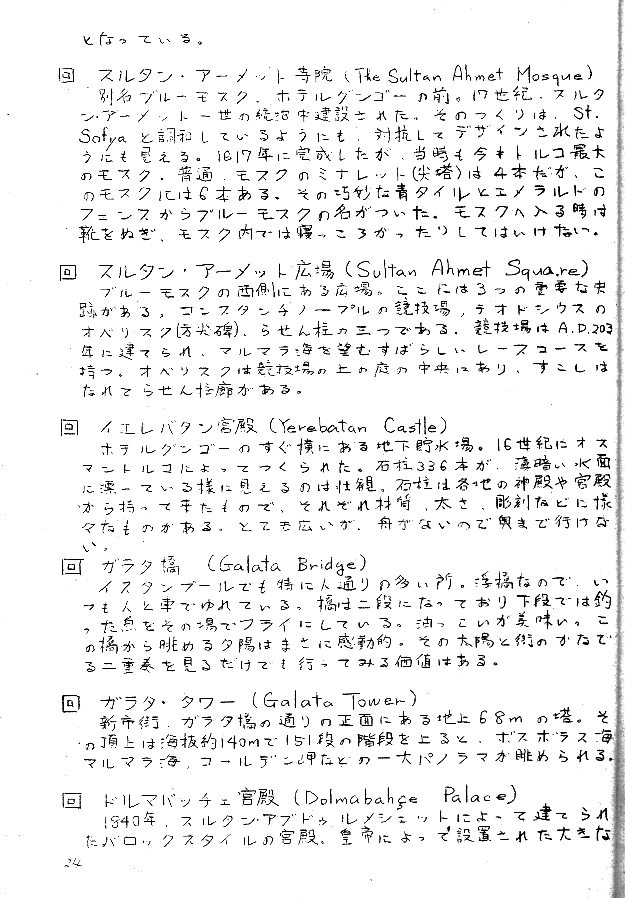 となっている。
回 スルタン・アーメット寺院 (The Sultan Ahmet Mosque)
別名ブルーモスク、ホテルグンゴーの前。17世紀、スルタ
ン・アーメット一世の統治中建設された。そのつくりは、St.
Sofyaと調和しているようにも、対抗してデザインされたよ
うにも見える。1617年に完成したが、当時も今もトルコ最大
のモスク。普通、モスクのミナレット(尖塔)は4本だが、こ
のモスクには6本ある。その巧妙な青タイルとエメラルドの
フェンスからブルーモスクの名がついた。モスクへ入る時は
靴をぬぎ、モスク内では寝っころがったりしてはいけない。
回 スルタン・アーメット広場 (Sultan Ahmet Square)
ブルーモスクの西側にある広場。ここには3つの重要な史
跡がある。コンスタンチノープルの競技場、テオドシウスの
オベリスク(方尖碑)、らせん柱の三つである。競技場はA.D.203
年に建てられ、マルマラ海を望むすばらしいレースコースを
持つ。オベリスクは競技場の上の庭の中央にあり、すこしは
なれてらせん柱廊がある。
回 イエレバタン宮殿 (Yerebatan Castle)
ホテルグンゴーのすぐ横にある地下貯水場。16世紀にオス
マントルコによってつくられた。石柱336本が、薄暗い水面
に漂っている様に見えるのは壮観。石柱は各地の神殿や宮殿
から持って来たもので、それぞれ材質、太さ、彫刻などに様
々なものがある。とても広いが、舟がないので奥まで行けな
い。
回 ガラタ橋 (Galata Bridge)
イスタンブールでも特に人通りの多い所。浮橋なので、い
つも人と車でゆれている。橋は二段になっており下段では釣
った魚をその場でフライにしている。油っこいが美味い。こ
の橋から眺める夕陽はまさに感動的。その太陽と街のかなで
る二重奏を見るだけでも行ってみる価値はある。
回 ガラタ・タワー (Galata Tower)
新市街、ガラタ橋の通りの正面にある地上68mの塔。そ
の頂上は海抜約140mで151段の階段を上ると、ボスボラス海
マルマラ海、ゴールデン岬などの一大パノラマが眺められる。
回 ドルマバッチェ宮殿 (Dolmabahçe Palace)
1840年、スルタン・アブドゥルメシェットによって建てられ
たバロックスタイルの宮殿。皇帝によって設置された大きな
24